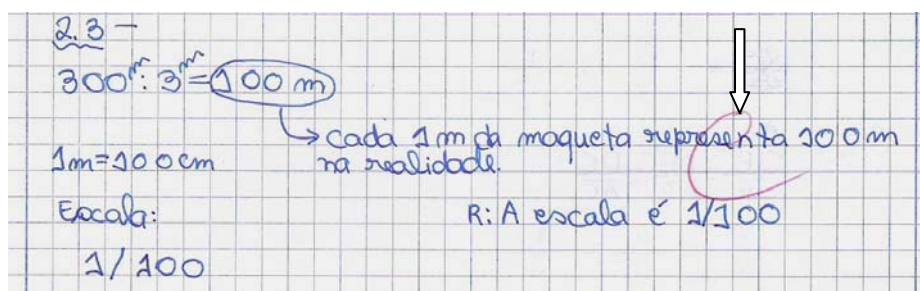 2.3 -
300m : 3m = 100 m
→ cada 1 m da maqueta representa 100 m
na realidade.
1m = 100 cm
Escala:
R: A escala é 1/100
1/100